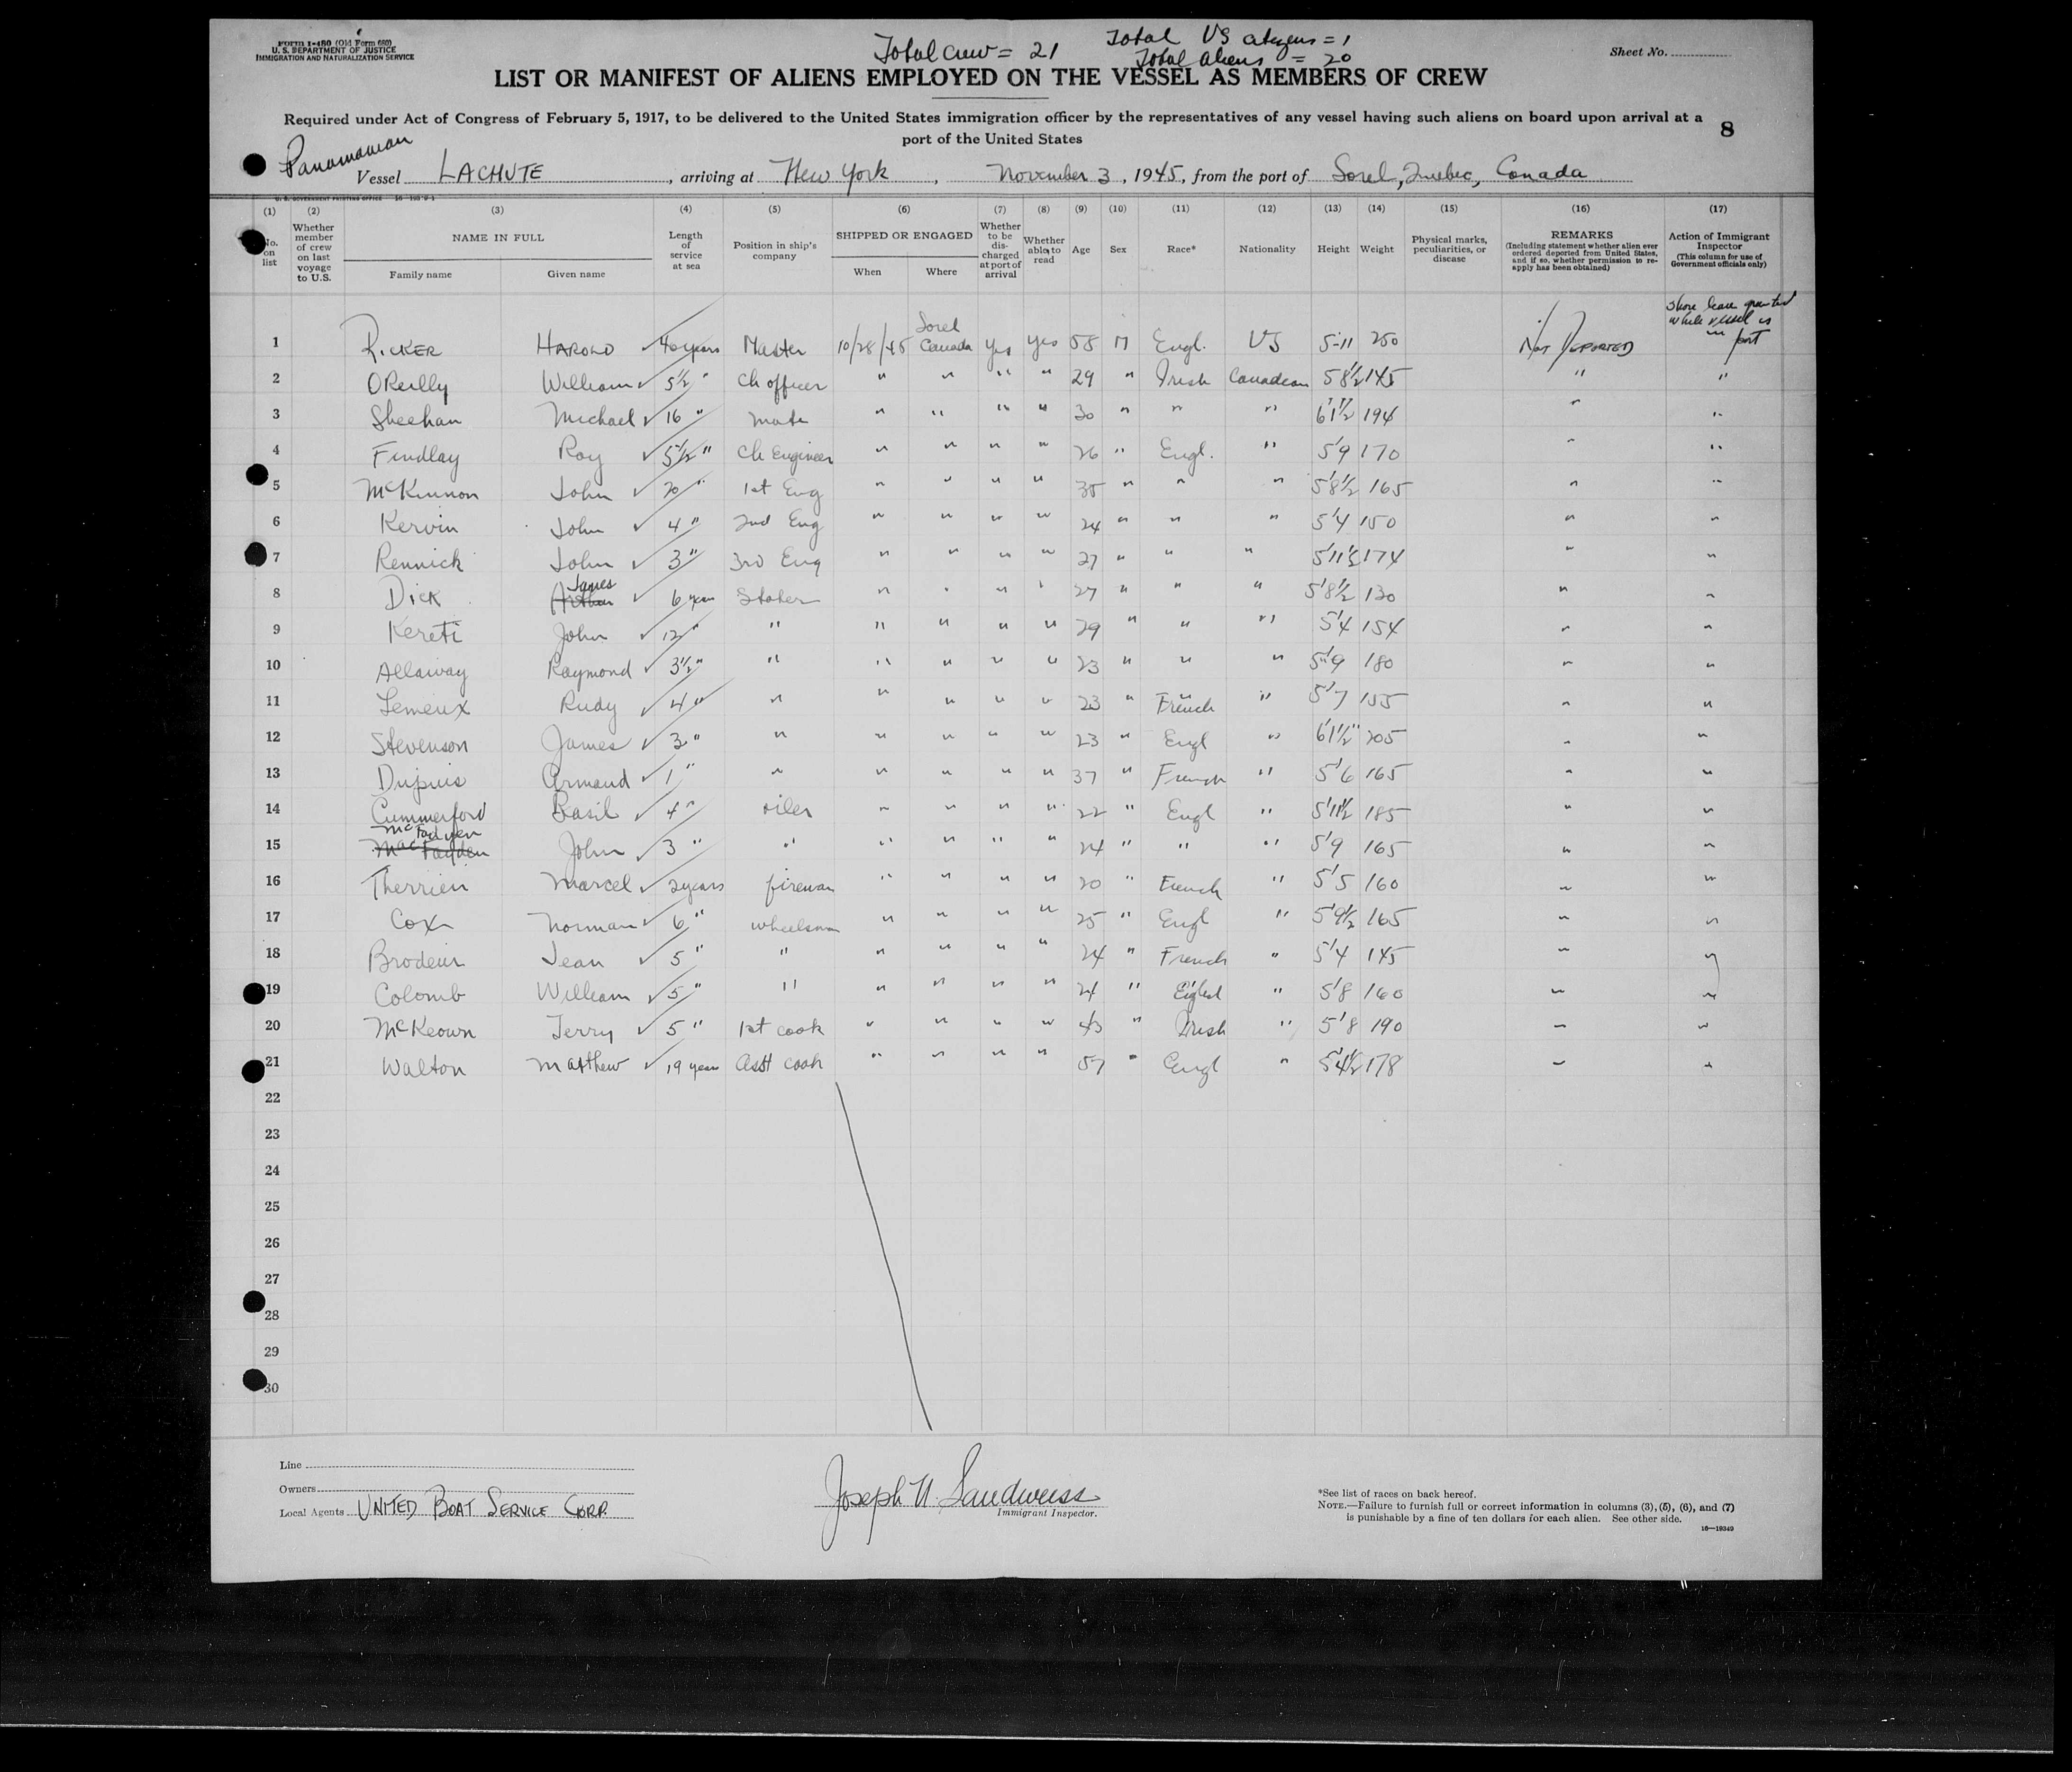 Form I-480 (Old Form 680)
U. S. DEPARTMENT OF JUSTICE
IMMIGRATION AND NATURALIZATION SERVICE
Total crew = 21
Total US citizens = 1
Total aliens = 20
Sheet No.
LIST OR MANIFEST OF ALIENS EMPLOYED ON THE VESSEL AS MEMBERS OF CREW
Required under Act of Congress of February 5, 1917, to be delivered to the United States immigration officer by the representatives of any vessel having such aliens on board upon arrival at a
port of the United States
8
Panamanian
Vessel LACHUTE, arriving at New York, November 3, 1945, from the port of Sorel, Quebec, Canada
(1) (2) (3) (4) (5) (6) (7) (8) (9) (10) (11) (12) (13) (14) (15) (16) (17)
No. on list
Whether member of crew on last voyage to U.S.
NAME IN FULL
Family name Given name
Length of service at sea
Position in ship's company
SHIPPED OR ENGAGED
When Where
Whether to be discharged at port of arrival
Whether able to read
Age Sex Race* Nationality Height Weight
Physical marks, peculiarities, or disease
REMARKS
(Including statement whether alien ever ordered deported from United States, and if so, whether permission to reapply has been obtained)
Action of Immigrant Inspector
(This column for use of Government officials only)
Shore leave granted while vessel is in port
1 RICKER HAROLD 40 years Master 10/28/45 Sorel Canada Yes Yes 58 M Engl. US 5-11 250 NOT DEPORTED
2 OReilly William 5½ " Ch officer " " " " 29 " Irish Canadian 5 8½ 145 " "
3 Sheehan Michael 16 " mate " " " " 30 " " " 6'1½ 194 " "
4 Findlay Roy 5½ " Ch Engineer " " " " 26 " Engl. " 5'9 170 " "
5 McKinnon John 20 " 1st Eng " " " " 35 " " " 5'8½ 165 " "
6 Kervin John 4 " 2nd Eng " " " " 24 " " " 5'4 150 " "
7 Rennick John 3 " 3rd Eng " " " " 27 " " " 5'11½ 174 " "
8 Dick James 6 year Stoker " " " " 27 " " " 5'8½ 130 " "
9 Kereti John 12 " " " " " " 29 " " " 5'4 154 " "
10 Allaway Raymond 3½ " " " " " " 23 " " " 5'9 180 " "
11 Lemeux Rudy 4 " " " " " " 23 " French " 5'7 155 " "
12 Stevenson James 3 " " " " " " 23 " Engl " 6'1½" 205 " "
13 Dupuis Armand 1 " " " " " " 37 " French " 5'6 165 " "
14 Cummerford Basil 4 " oiler " " " " 22 " Engl " 5'11½ 185 " "
McFadyen
15 MacFayden John 3 " " " " " " 24 " " " 5'9 165 " "
16 Therrien Marcel 2 years fireman " " " " 20 " French " 5'5 160 " "
17 Cox Norman 6 " wheelsman " " " " 25 " Engl " 5'9½ 165 " "
18 Brodeur Jean 5 " " " " " " 24 " French " 5'4 145 " "
19 Colomb William 5 " " " " " " 24 " " 5'8 160 " "
20 McKeown Terry 5 " 1st cook " " " " 43 " Irish " 5'8 190 " "
21 Walton Matthew 19 year Asst cook " " " " 57 " Engl " 5'4½ 178 " "
22
23
24
25
26
27
28
29
30
Line
Owners
Local Agents UNITED BOAT SERVICE CORP.
Joseph N. Sandweiss
Immigrant Inspector.
*See list of races on back hereof.
NOTE.—Failure to furnish full or correct information in columns (3), (5), (6), and (7)
is punishable by a fine of ten dollars for each alien. See other side.
16—19349